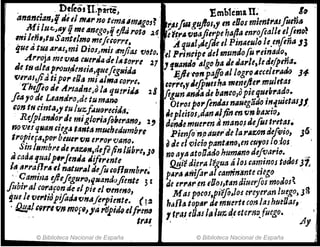 Delcos II. parte,
anancian, q̃ de el mar no tema amagos?
Mi luz, ay q̃ me anego, q̃ esta roto
mi leño, tu Santelmo me socorre,
que à tu aras, mi Dios, mis ansias voto.
Arroja me vna cuerda de la torre
de tu alta prouidencia, que seguida
veras, si à ti por ella mi alma corre.
Theseo de Ariadne, ò la querida
sea yo de Leandro, de tu mano
con tu cinta, y tu luz, fauorecida.
Resplandor de mi gloria soberano,
no ves quan ciega tanta muchedumbre
tropieça, por beuer su error vano.
Sin lumbre de razon, de fè sin lùbre,
à cada qual por senda diferente
la arrastra el natural de su costumbre.
Camina este seguro, quando siente
subir al coraçon de el pie el veneno,
que le vertiò pisada vna serpiente.
Qual corre vn moço, ya rõpido el freno
tras
Emblema II. 80
tras sus gustos, y en ellos mientras sueña
le tira vna sierpe hasta enrosca lle el seno
A qual, desde el Pinaculo le enseña
el Principe del mundo su reinado,
y quando algo ha de darle, le despeña.
Este con passo al logro acelerado
corre, y despues ha menester muletas
segun anda de banco, ò pie quebrado.
Otros por sendas nauegãdo inquietas
de pleitos, dan al fin en vn baxio,
donde mueren à manos de sus tretas.
Pienso no auer de la razon desvio,
ò de el vicio pantano, en cuyos lodos
no aya atollado humano desvario.
Quiẽ diera lẽgua à los caminos todos
para auisar al caminante ciego
de errar en ellos, tan diuersos modos?
Mas pocos, piẽso, los creyeran luego,
hasta topar de muerte con las huellas,
y tras ellas la luz de eterno fuego.
Ay
© Biblioteca Nacional de España
© Biblioteca Nacional de España